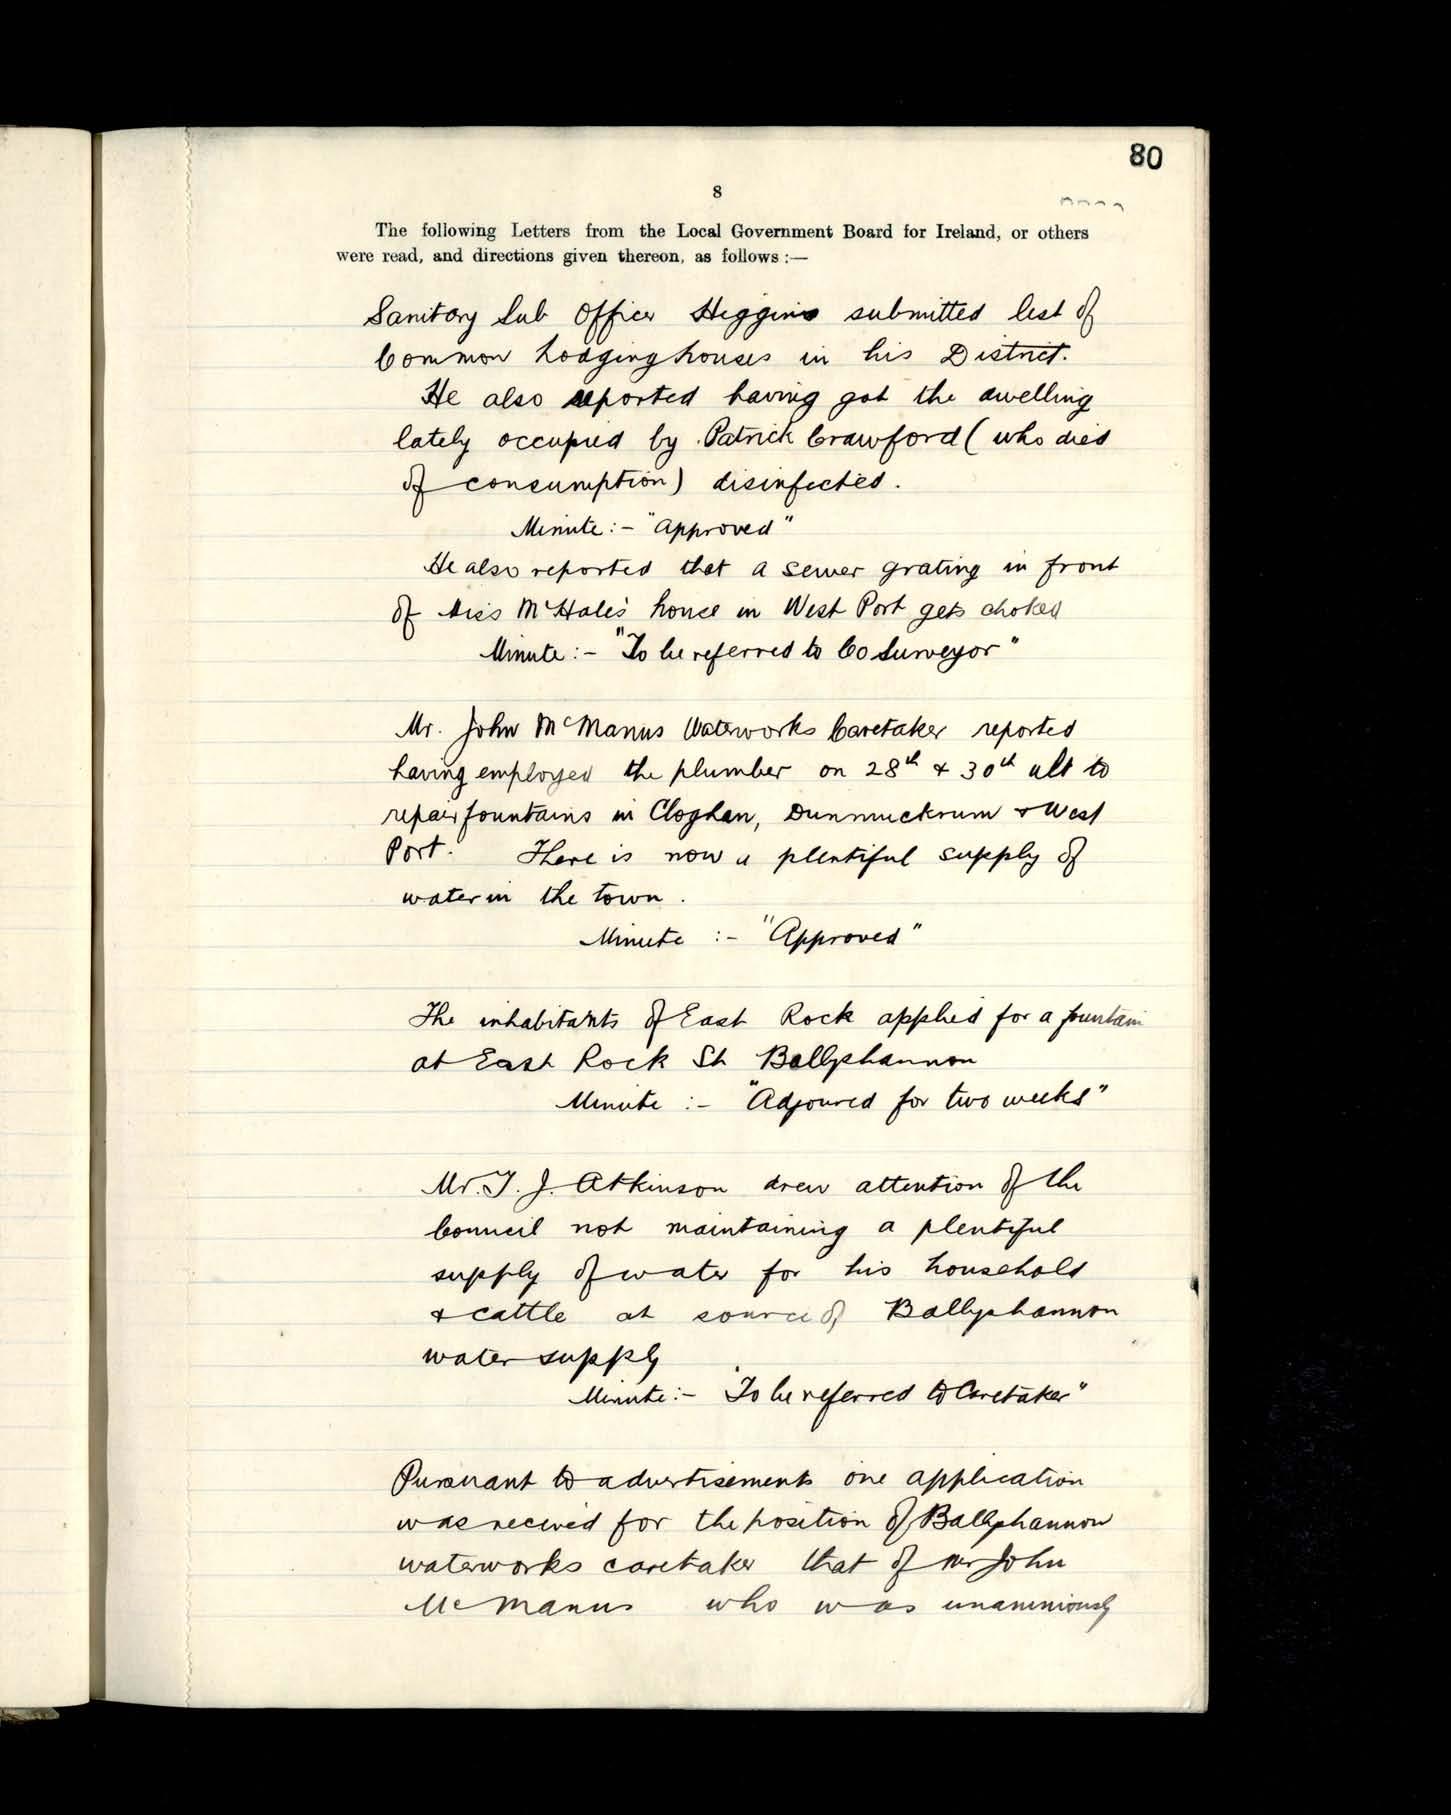 80
8
The following Letters from the Local Government Board for Ireland, or others
were read, and directions given thereon, as follows :—
Sanitary Sub Officer Higgins submitted list of
Common Lodginghouses in his District.
He also reported having got the dwelling
lately occupied by Patrick Crawford ( who died
of consumption) disinfected.
Minute :- "Approved"
He also reported that a sewer grating in front
of Miss McHale's house in West Port gets choked
Minute :- "To be referred to Co Surveyor"
Mr. John McManus Waterworks Caretaker reported
having employed the plumber on 28th & 30th ult to
repair fountains in Cloghan, Dunmuckrum & West
Port. There is now a plentiful supply of
water in the town.
Minute :- "Approved"
The inhabitants of East Rock applied for a fountain
at East Rock St Ballyshannon
Minute :- "Adjourned for two weeks"
Mr. T. J. Atkinson drew attention of the
Council not maintaining a plentiful
supply of water for his household
& cattle at source of Ballyshannon
water supply
Minute :- "To be referred to Caretaker"
Pursuant to advertisements one application
was received for the position of Ballyshannon
waterworks caretaker that of Mr John
McManus who was unanimously